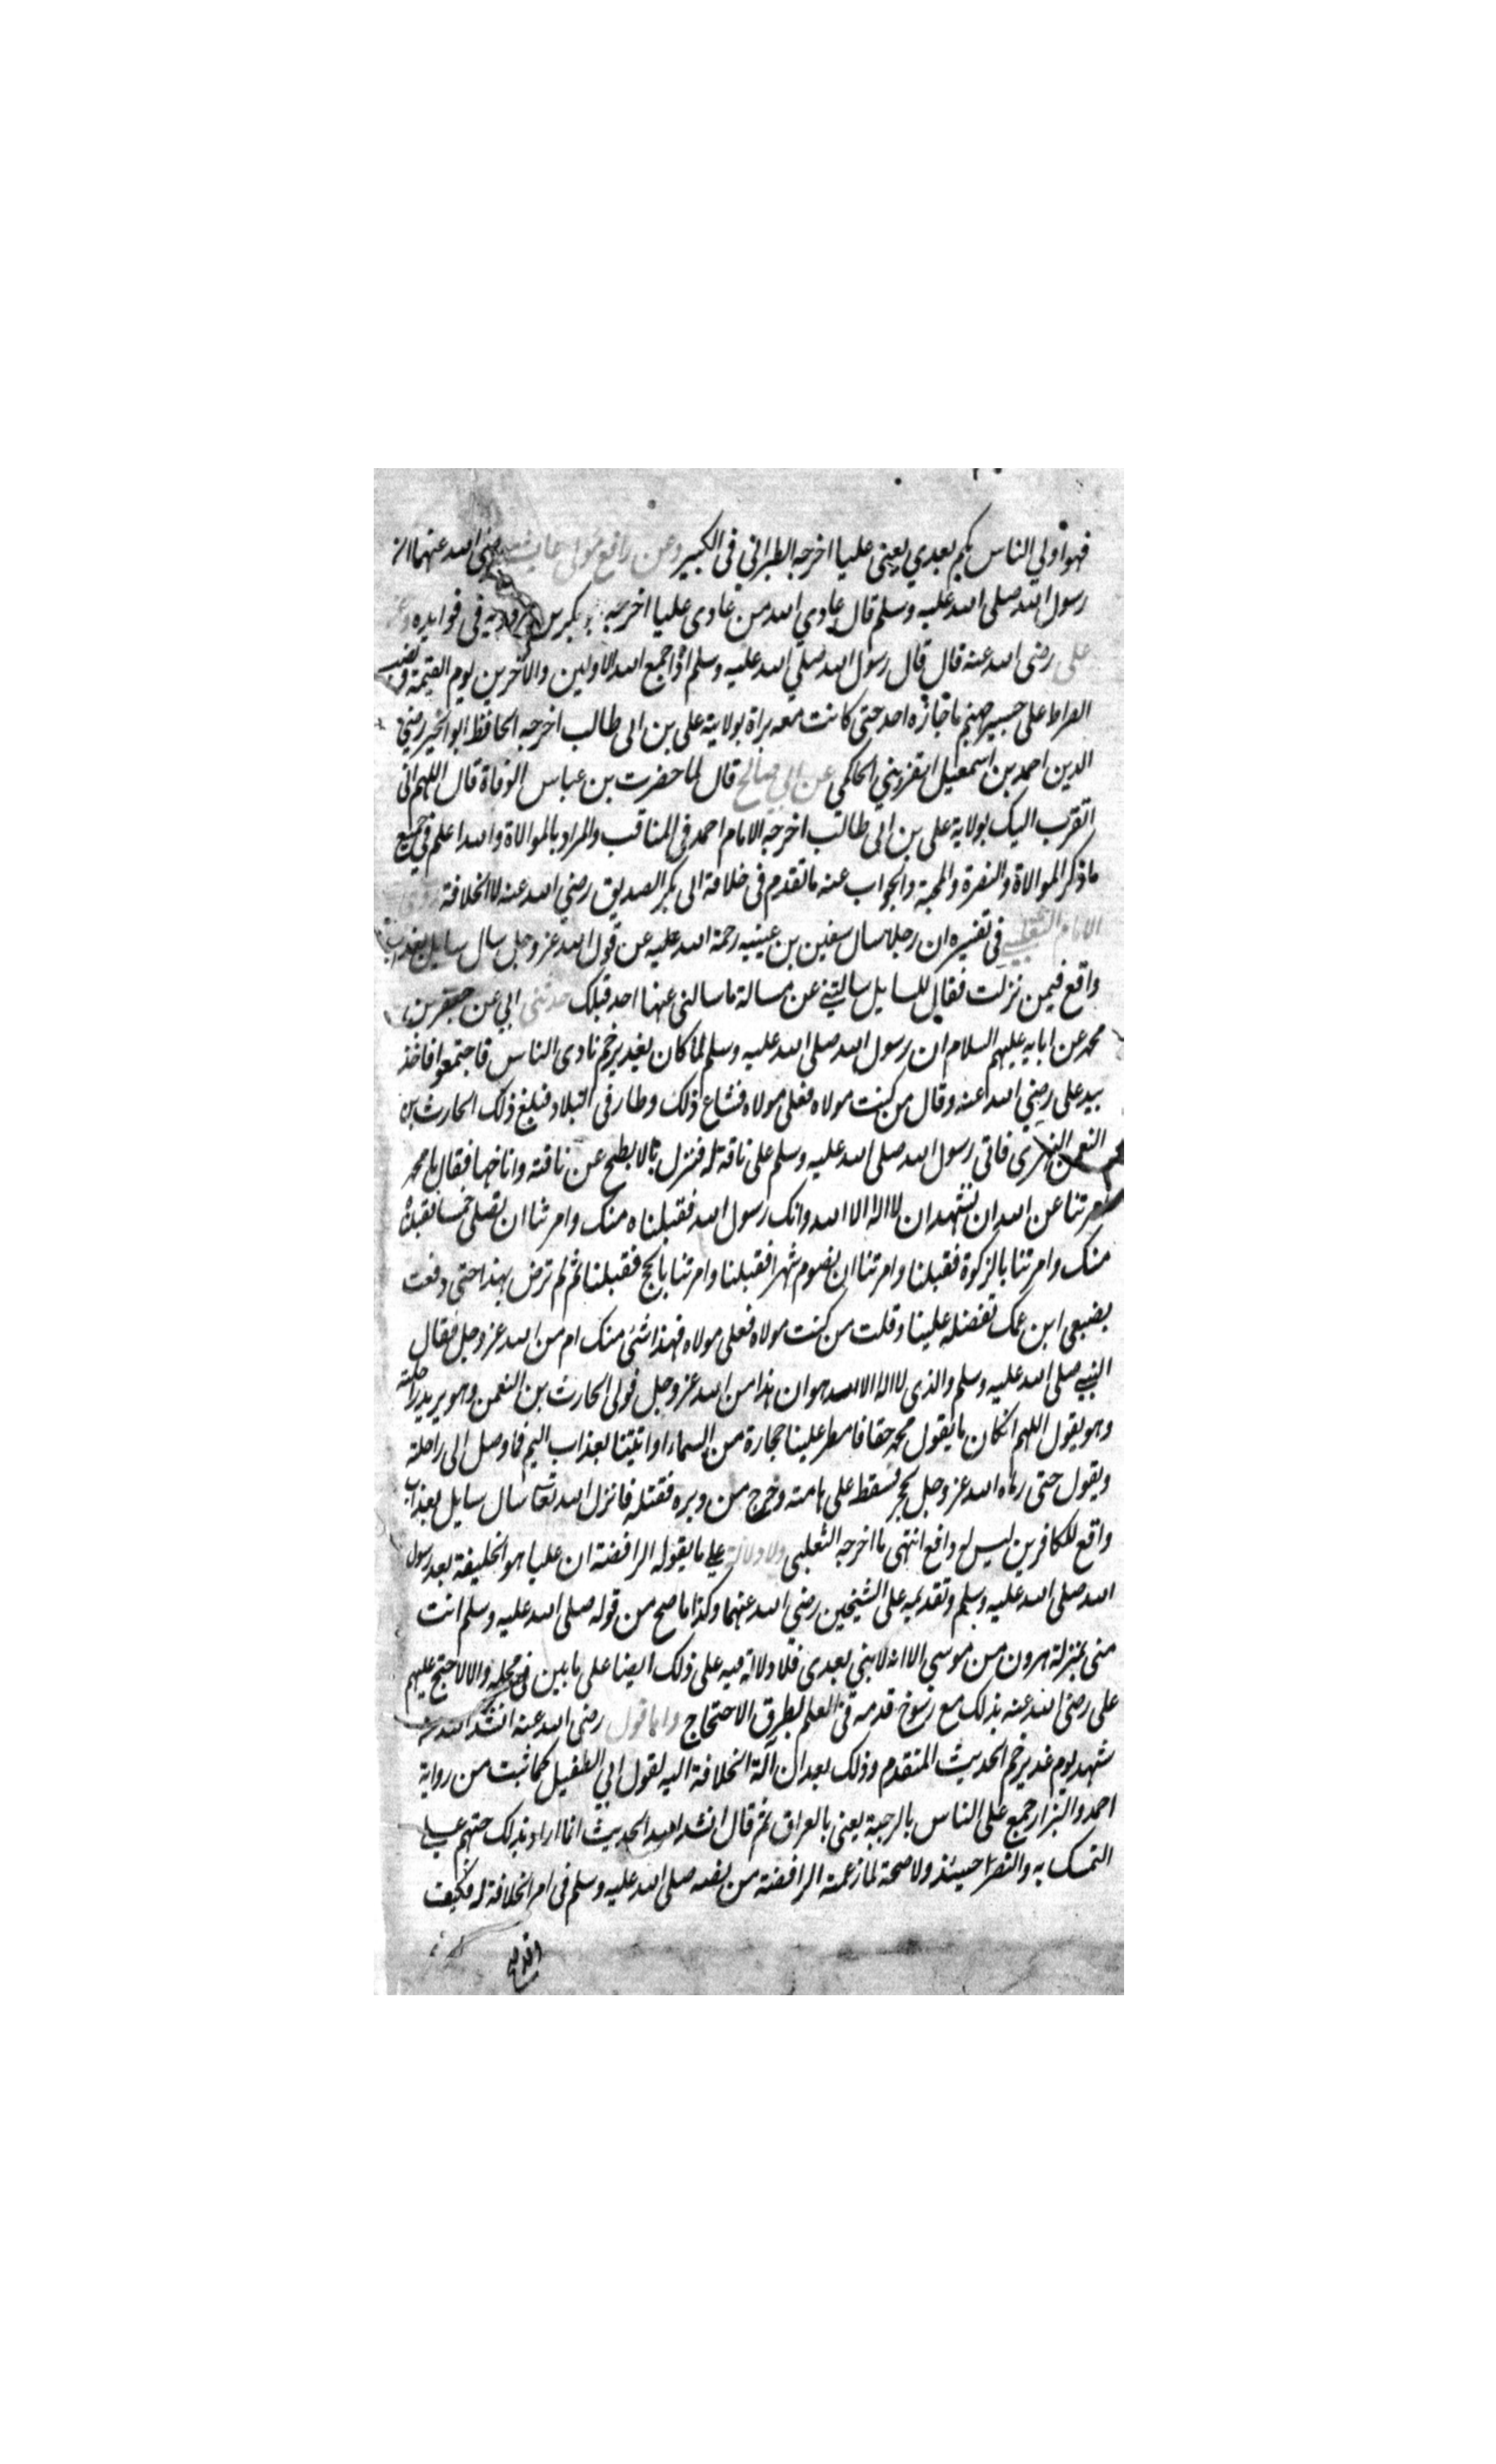 فهو اولي الناس بكم بعدي يعني عليا اخرجه الطبراني في الكبير وعن رافع مولى عايشه رضى الله عنهما ان
رسول الله صلى الله عليه وسلم قال عادي الله من عادى عليا اخرجه بكر بن مردويه في فوايده وعن
على رضى الله عنه قال قال رسول الله صلي الله عليه وسلم اذا جمع الله الاولين والآخرين يوم القيمة ونصب
الصراط على جسر جهنم ما جازه احد حتى كانت معه براة بولاية على بن ابى طالب اخرجه الحافظ ابو الخير رضي
الدين احمد بن اسمعيل القزويني الحاكمي عن ابي صالح قال لما حضرت بن عباس الوفاة قال اللهم انى
اتقرب اليك بولاية على بن ابى طالب اخرجه الامام احمد فى المناقب والمراد بالموالاة والله اعلم في جميع
ما ذكر الموالاة والنصرة والمحبة والجواب عنه ما تقدم فى خلافة ابى بكر الصديق رضي الله عنه لا الخلافة وروى
الامام الثعلبي في تفسيره ان رجلا سال سفين بن عيينه رحمة الله عليه عن قول الله عز وجل سال سايل بعذاب
واقع فيمن نزلت فقال للسايل سالتني عن مسالة ما سالنى عنها احد قبلك حدثنى ابي عن جعفر بن
محمد عن ابايه عليهم السلام ان رسول الله صلى الله عليه وسلم لما كان بغدير خم نادى الناس فاجتمعوا فاخذ
بيد على رضي الله عنه وقال من كنت مولاه فعلى مولاه فشاع ذلك وطار فى البلاد فبلغ ذلك الحارث بن
النعمن الفهري فاتى رسول الله صلى الله عليه وسلم على ناقة له فنزل بالابطح عن ناقته واناخها فقال يا محمد
امرتنا عن الله ان نشهد ان لا اله الا الله وانك رسول الله فقبلناه منك وامرتنا ان نصلى خمسا فقبلناه
منك وامرتنا بالزكوة فقبلنا وامرتنا ان نصوم شهرا فقبلنا وامرتنا بالحج فقبلنا ثم لم ترض بهذا حتى دفعت
بضبعى ابن عمك تفضله علينا وقلت من كنت مولاه فعلى مولاه فهذا شئ منك ام من الله عز وجل فقال
النبي صلى الله عليه وسلم والذى لا اله الا الله هو ان هذا من الله عز وجل فولى الحارث بن النعمن وهو يريد راحلته
وهو يقول اللهم ان كان ما يقول محمد حقا فامطر علينا حجارة من السماء او اتيتنا بعذاب اليم فما وصل الى راحلته
ويقول حتى رماه الله عز وجل بحجر فسقط على هامته وخرج من دبره فقتله فانزل الله تعالى سال سايل بعذاب
واقع للكافرين ليس له دافع انتهى ما اخرجه الثعلبى ولا دلالة علي ما يقوله الرافضة ان عليا هو الخليفة بعد رسول
الله صلى الله عليه وسلم وتقديمه على الشيخين رضي الله عنهما وكذا ما صح من قوله صلى الله عليه وسلم انت
منى بمنزلة هرون من موسي الا انه لا نبي بعدى فلا دلالة فيه على ذلك ايضا على ما بين فى محله والا لاحتج عليهم
على رضى الله عنه بذلك مع رسوخ قدمه فى العلم بطرق الاحتجاج واما قول رضى الله عنه انشد الله من
شهد يوم غدير خم الحديث المتقدم وذلك بعد ان آلة الخلافة اليه لقول ابي الطفيل كما ثبت من رواية
احمد والبزار جمع على الناس بالرحبة يعنى بالعراق ثم قال انشد الله الحديث انما اراد بذلك حثهم على
التمسك به والنصرة حينئذ ولا صحة لما زعمته الرافضة من نصه صلى الله عليه وسلم فى امر الخلافة له فكيف